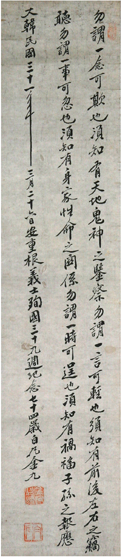 勿謂一念可欺也須知有天地鬼神之鑒察勿謂一言可輕也須知有前後左右之竊
聽勿謂一事可忽也須知有身家性命之關係勿謂一時可逞也須知有禍福子孫之報應
大韓民國三十一年三月二十六日安重根義士殉國三十九週紀念七十四歲白凡金九